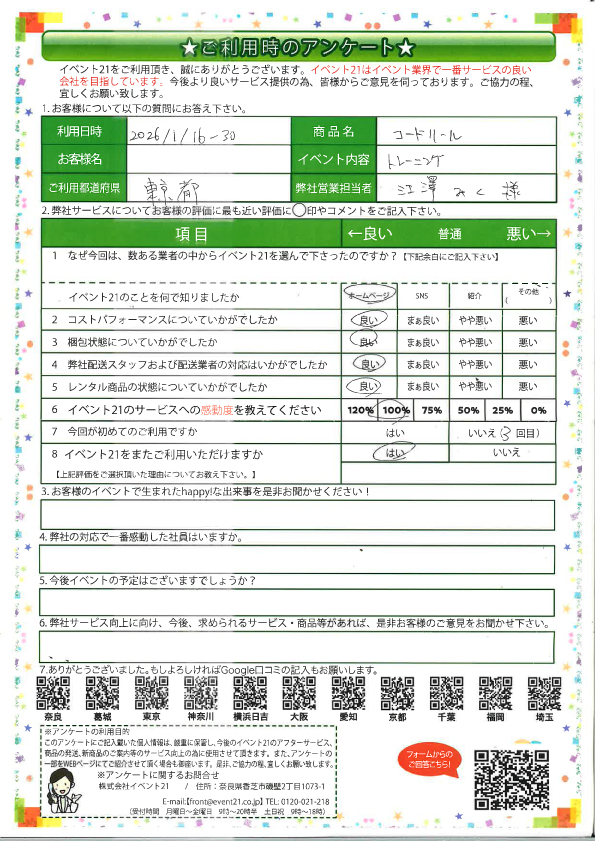 ★ご利用時のアンケート★
イベント21をご利用頂き、誠にありがとうございます。イベント21はイベント業界で一番サービスの良い
会社を目指しています。今後より良いサービス提供の為、皆様からご意見を伺っております。ご協力の程、
宜しくお願い致します。
1. お客様について以下の質問にお答え下さい。
利用日時 2026/1/16-30 商品名 コードリール
お客様名 イベント内容 トレーニング
ご利用都道府県 東京都 弊社営業担当者 江澤 みく 様
2. 弊社サービスについてお客様の評価に最も近い評価に○印やコメントをご記入下さい。
項目 ←良い 普通 悪い→
1 なぜ今回は、数ある業者の中からイベント21を選んで下さったのですか?【下記余白にご記入下さい】
イベント21のことを何で知りましたか ホームページ SNS 紹介 その他( )
2 コストパフォーマンスについていかがでしたか 良い まぁ良い やや悪い 悪い
3 梱包状態についていかがでしたか 良い まぁ良い やや悪い 悪い
4 弊社配送スタッフおよび配送業者の対応はいかがでしたか 良い まぁ良い やや悪い 悪い
5 レンタル商品の状態についていかがでしたか 良い まぁ良い やや悪い 悪い
6 イベント21のサービスへの感動度を教えてください 120% 100% 75% 50% 25% 0%
7 今回が初めてのご利用ですか はい いいえ(3回目)
8 イベント21をまたご利用いただけますか はい いいえ
【上記評価をご選択頂いた理由についてお教え下さい。】
3. お客様のイベントで生まれたhappy!な出来事を是非お聞かせください!
4. 弊社の対応で一番感動した社員はいますか。
5. 今後イベントの予定はございますでしょうか?
6. 弊社サービス向上に向け、今後、求められるサービス・商品等があれば、是非お客様のご意見をお聞かせ下さい。
7. ありがとうございました。もしよろしければGoogle口コミの記入もお願いします。
奈良 葛城 東京 神奈川 横浜日吉 大阪 愛知 京都 千葉 福岡 埼玉
※アンケートの利用目的
このアンケートにご記入戴いた個人情報は、厳重に保管し、今後のイベント21のアフターサービス、
商品の発送、新商品のご案内等のサービス向上の為に使用させて頂きます。また、アンケートの
一部をWEBページにてご紹介させて頂く場合も御座います。是非、ご協力の程、宜しくお願い致します。
※アンケートに関するお問合せ
株式会社イベント21 / 住所:奈良県香芝市磯壁2丁目1073-1
E-mail:【front@event21.co.jp】 TEL: 0120-021-218
(受付時間 月曜日〜金曜日 9時〜20時半 土日祝 9時〜18時)
フォームからの
ご回答はこちら!